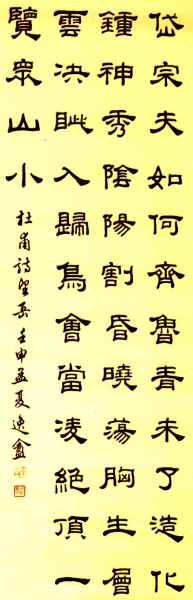 岱宗夫如何齊魯青未了造化
鍾神秀陰陽割昏曉蕩胸生層
雲決眦入歸鳥會當凌絕頂一
覽眾山小
杜甫詩望岳壬申孟夏逸盦